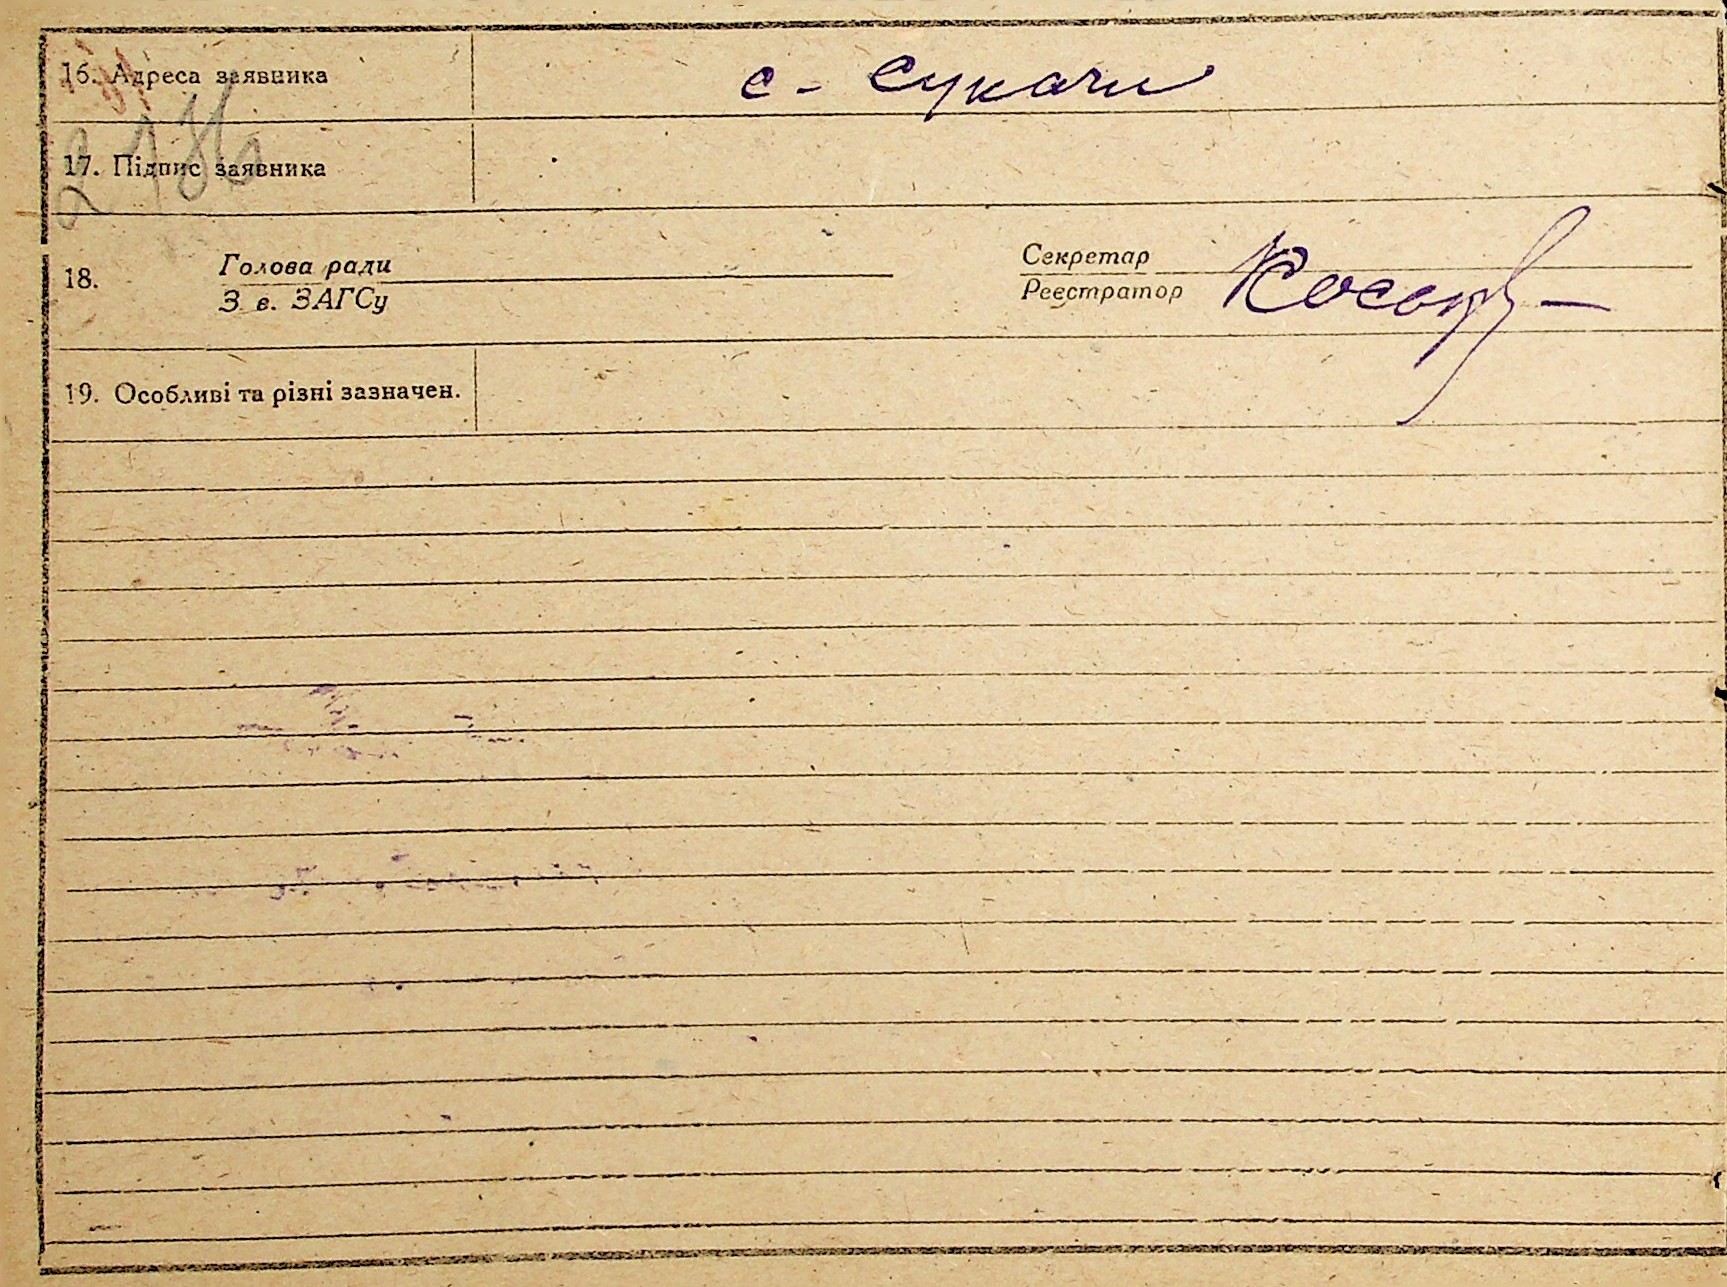 16. Адреса заявника с - Сукачи
17. Підпис заявника
18. Голова ради Секретар
З в. ЗАГСу Реєстратор
19. Особливі та різні зазначен.